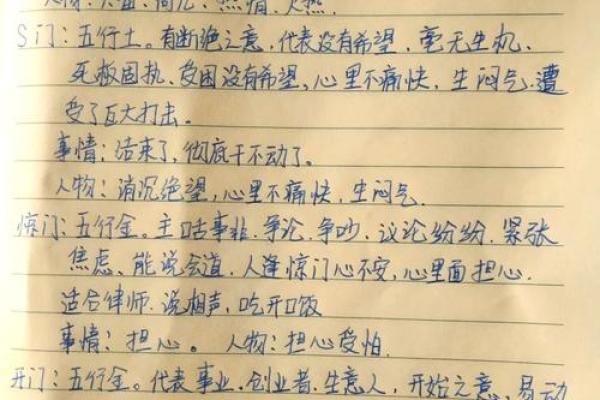 人物: 大富、荷儿、热情、火热.
S门: 五行土。有断绝之意,代表没有希望、毫无生机、
死板固执、受困没有希望,心里不痛快,生闷气.遭
受了巨大打击。
事情: 结束了,彻底干不动了。
人物: 消沉绝望,心里不痛快,生闷气.
惊门: 五行金。主咕事非.争论.争吵.议论纷纷.紧张
焦虑、能说会道,人逢惊门心不安,心里面担心.
适合律师.说相声,吃开口饭
事情: 担心。 人物: 担心受怕.
开门: 五行金。代表事业.创业者.生意人,开始之意,易动